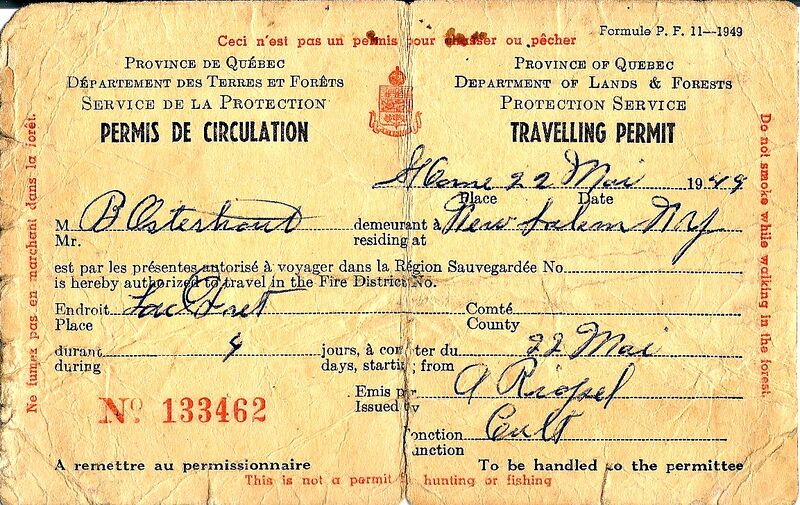 Ceci n'est pas un permis pour chasser ou pêcher
Formule P. F. 11—1949
PROVINCE DE QUÉBEC
DÉPARTEMENT DES TERRES ET FORÊTS
SERVICE DE LA PROTECTION
PERMIS DE CIRCULATION
PROVINCE OF QUEBEC
DEPARTMENT OF LANDS & FORESTS
PROTECTION SERVICE
TRAVELLING PERMIT
Ne fumez pas en marchant dans la forêt.
Do not smoke while walking in the forest.
22 Mai 1949
Place Date
M. B Osterhout demeurant à New Salem NY
Mr. residing at
est par les présentes autorisé à voyager dans la Région Sauvegardée No
is hereby authorized to travel in the Fire District No.
Endroit Comté
Place County
durant jours, à compter du 22 Mai
during days, starting from
Emis par A Riopel
Issued by
Fonction Cult
Function
No 133462
A remettre au permissionnaire
To be handled to the permittee
This is not a permit hunting or fishing